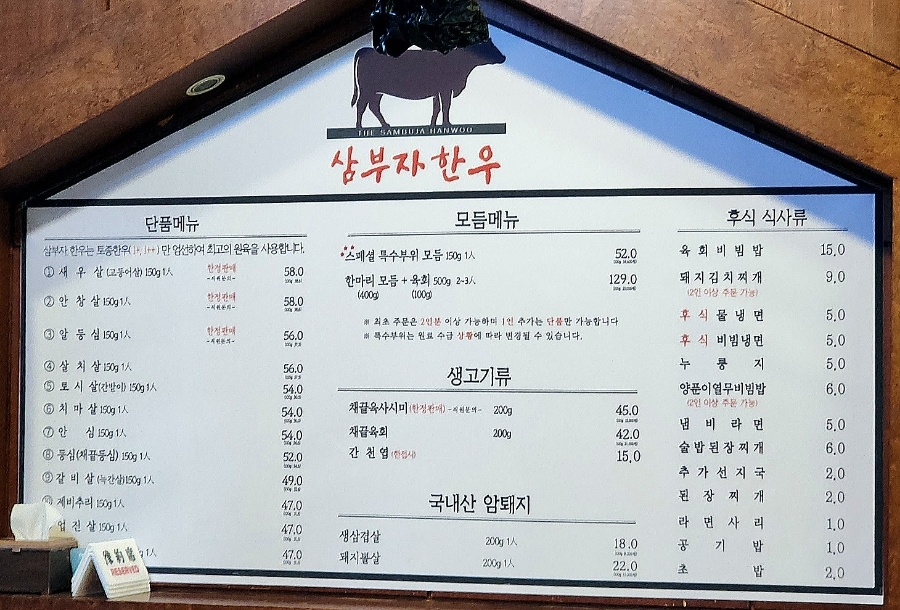 THE SAMBUJA HANWOO
삼부자한우
단품메뉴
삼부자 한우는 토종한우(1+, 1++)만 엄선하여 최고의 원육을 사용합니다.
① 새 우 살(고등어살) 150g 1人 한정판매 -직원문의- 58.0
② 안 창 살 150g 1人 한정판매 -직원문의- 58.0
③ 알 등 심 150g 1人 한정판매 -직원문의- 56.0
④ 살 치 살 150g 1人 56.0
⑤ 토 시 살(간받이) 150g 1人 54.0
⑥ 치 마 살 150g 1人 54.0
⑦ 안 심 150g 1人 54.0
⑧ 등심(채끝등심) 150g 1人 52.0
⑨ 갈 비 살(늑간살) 150g 1人 49.0
제비추리 150g 1人 47.0
업 진 살 150g 1人 47.0
47.0
RESERVED
모듬메뉴
스페셜 특수부위 모듬 150g 1人 52.0
한마리 모듬 + 육회 500g 2~3人 129.0
(400g) (100g)
※ 최초 주문은 2인분 이상 가능하며 1인 추가는 단품만 가능합니다
※ 특수부위는 원료 수급 상황에 따라 변경될 수 있습니다.
생고기류
채끝육사시미(한정판매) -직원문의- 200g 45.0
채끝육회 200g 42.0
간 천 엽(한접시) 15.0
국내산 암돼지
생삼겹살 200g 1人 18.0
돼지뽈살 200g 1人 22.0
후식 식사류
육 회 비 빔 밥 15.0
돼지김치찌개 9.0
(2인 이상 주문 가능)
후 식 물 냉 면 5.0
후 식 비빔냉면 5.0
누 룽 지 5.0
양푼이열무비빔밥 6.0
(2인 이상 주문 가능)
냄 비 라 면 5.0
술밥된장찌개 6.0
추 가 선 지 국 2.0
된 장 찌 개 2.0
라 면 사 리 1.0
공 기 밥 1.0
초 밥 2.0